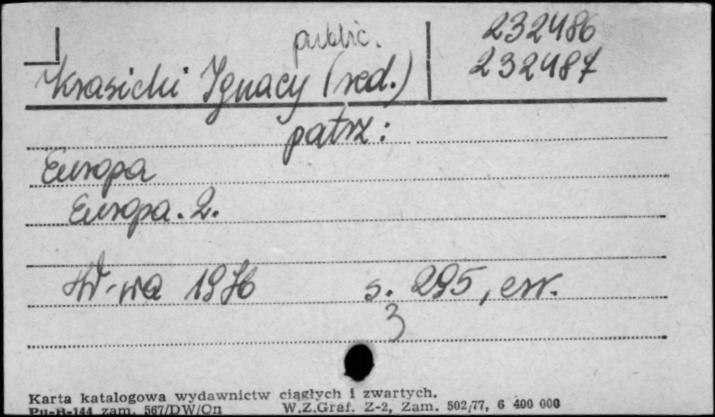 public.
232486
232487
Krasicki Ignacy (red.)
patrz:
Europa
Europa. 2.
W-wa 1976 s. 295, err.
3
Karta katalogowa wydawnictw ciągłych i zwartych.
Pu-B-144 zam. 567/DW/On W.Z.Graf. Z-2, Zam. 502/77, 6 400 000